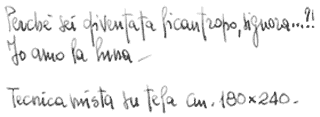 Perché sei diventata licantropo, signora...?!
Io amo la luna –
Tecnica mista su tela cm. 180×240.